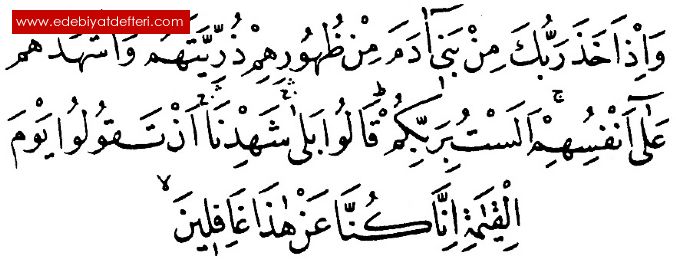 www.edebiyatdefteri.com
وَاِذْ اَخَذَ رَبُّكَ مِنْ بَنٖٓى اٰدَمَ مِنْ ظُهُورِهِمْ ذُرِّيَّتَهُمْ وَاَشْهَدَهُمْ
عَلٰٓى اَنْفُسِهِمْۚ اَلَسْتُ بِرَبِّكُمْۜ قَالُوا بَلٰىۛ شَهِدْنَاۛ اَنْ تَقُولُوا يَوْمَ
الْقِيٰمَةِ اِنَّا كُنَّا عَنْ هٰذَا غَافِلٖينَۙ